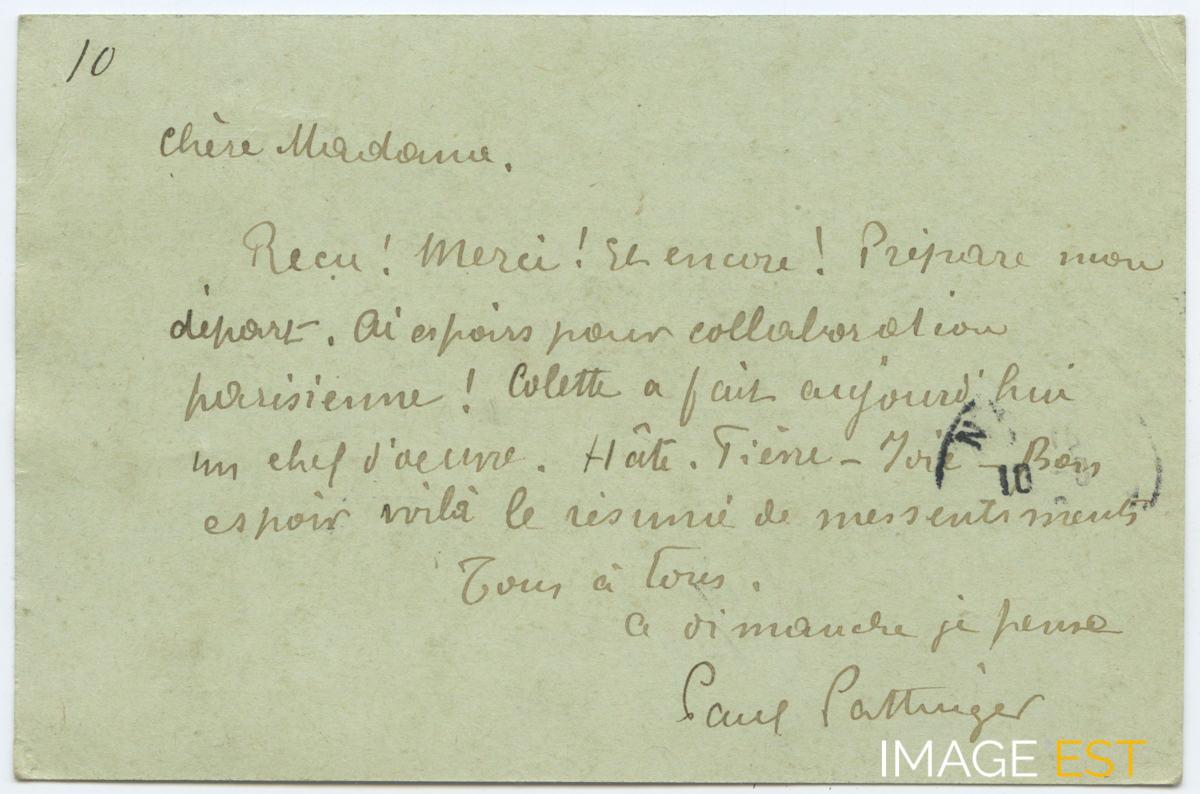 10
Chère Madame.
Reçu! Merci! Et encore! Prépare mon
départ. Ai espoirs pour collaboration
parisienne! Colette a fait aujourd'hui
un chef d'oeuvre. Hâte. Fièvre – Joie – Bon
espoir voilà le résumé de mes sentiments
Tous à tous.
a dimanche je pense
Paul Pattinger
N
10
IMAGE EST